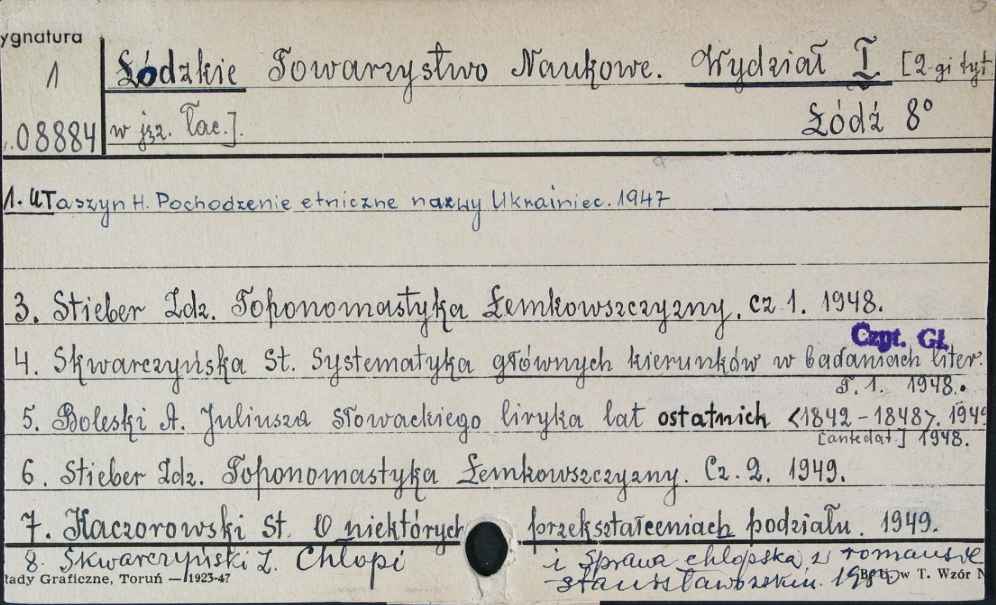 ygnatura
1 Łódzkie Towarzystwo Naukowe. Wydział I [2-gi tyt.
08884 w jęz. łac.]. Łódź 8°
1. Ułaszyn H. Pochodzenie etniczne nazwy Ukrainiec. 1947
3. Stieber Zdz. Toponomastyka Łemkowszczyzny. cz 1. 1948.
Czyt. Gł.
4. Skwarczyńska St. Systematyka głównych kierunków w badaniach liter.
T. 1. 1948.
5. Boleski A. Juliusza Słowackiego liryka lat ostatnich <1842-1848>. 1949
[antedat.] 1948.
6. Stieber Zdz. Toponomastyka Łemkowszczyzny. Cz. 2. 1949.
7. Kaczorowski St. O niektórych przekształceniach podziału. 1949.
8. Skwarczyński Z. Chłopi i sprawa chłopska w romansie
stanisławowskim.
łady Graficzne, Toruń — 1923-47 w T. Wzór N